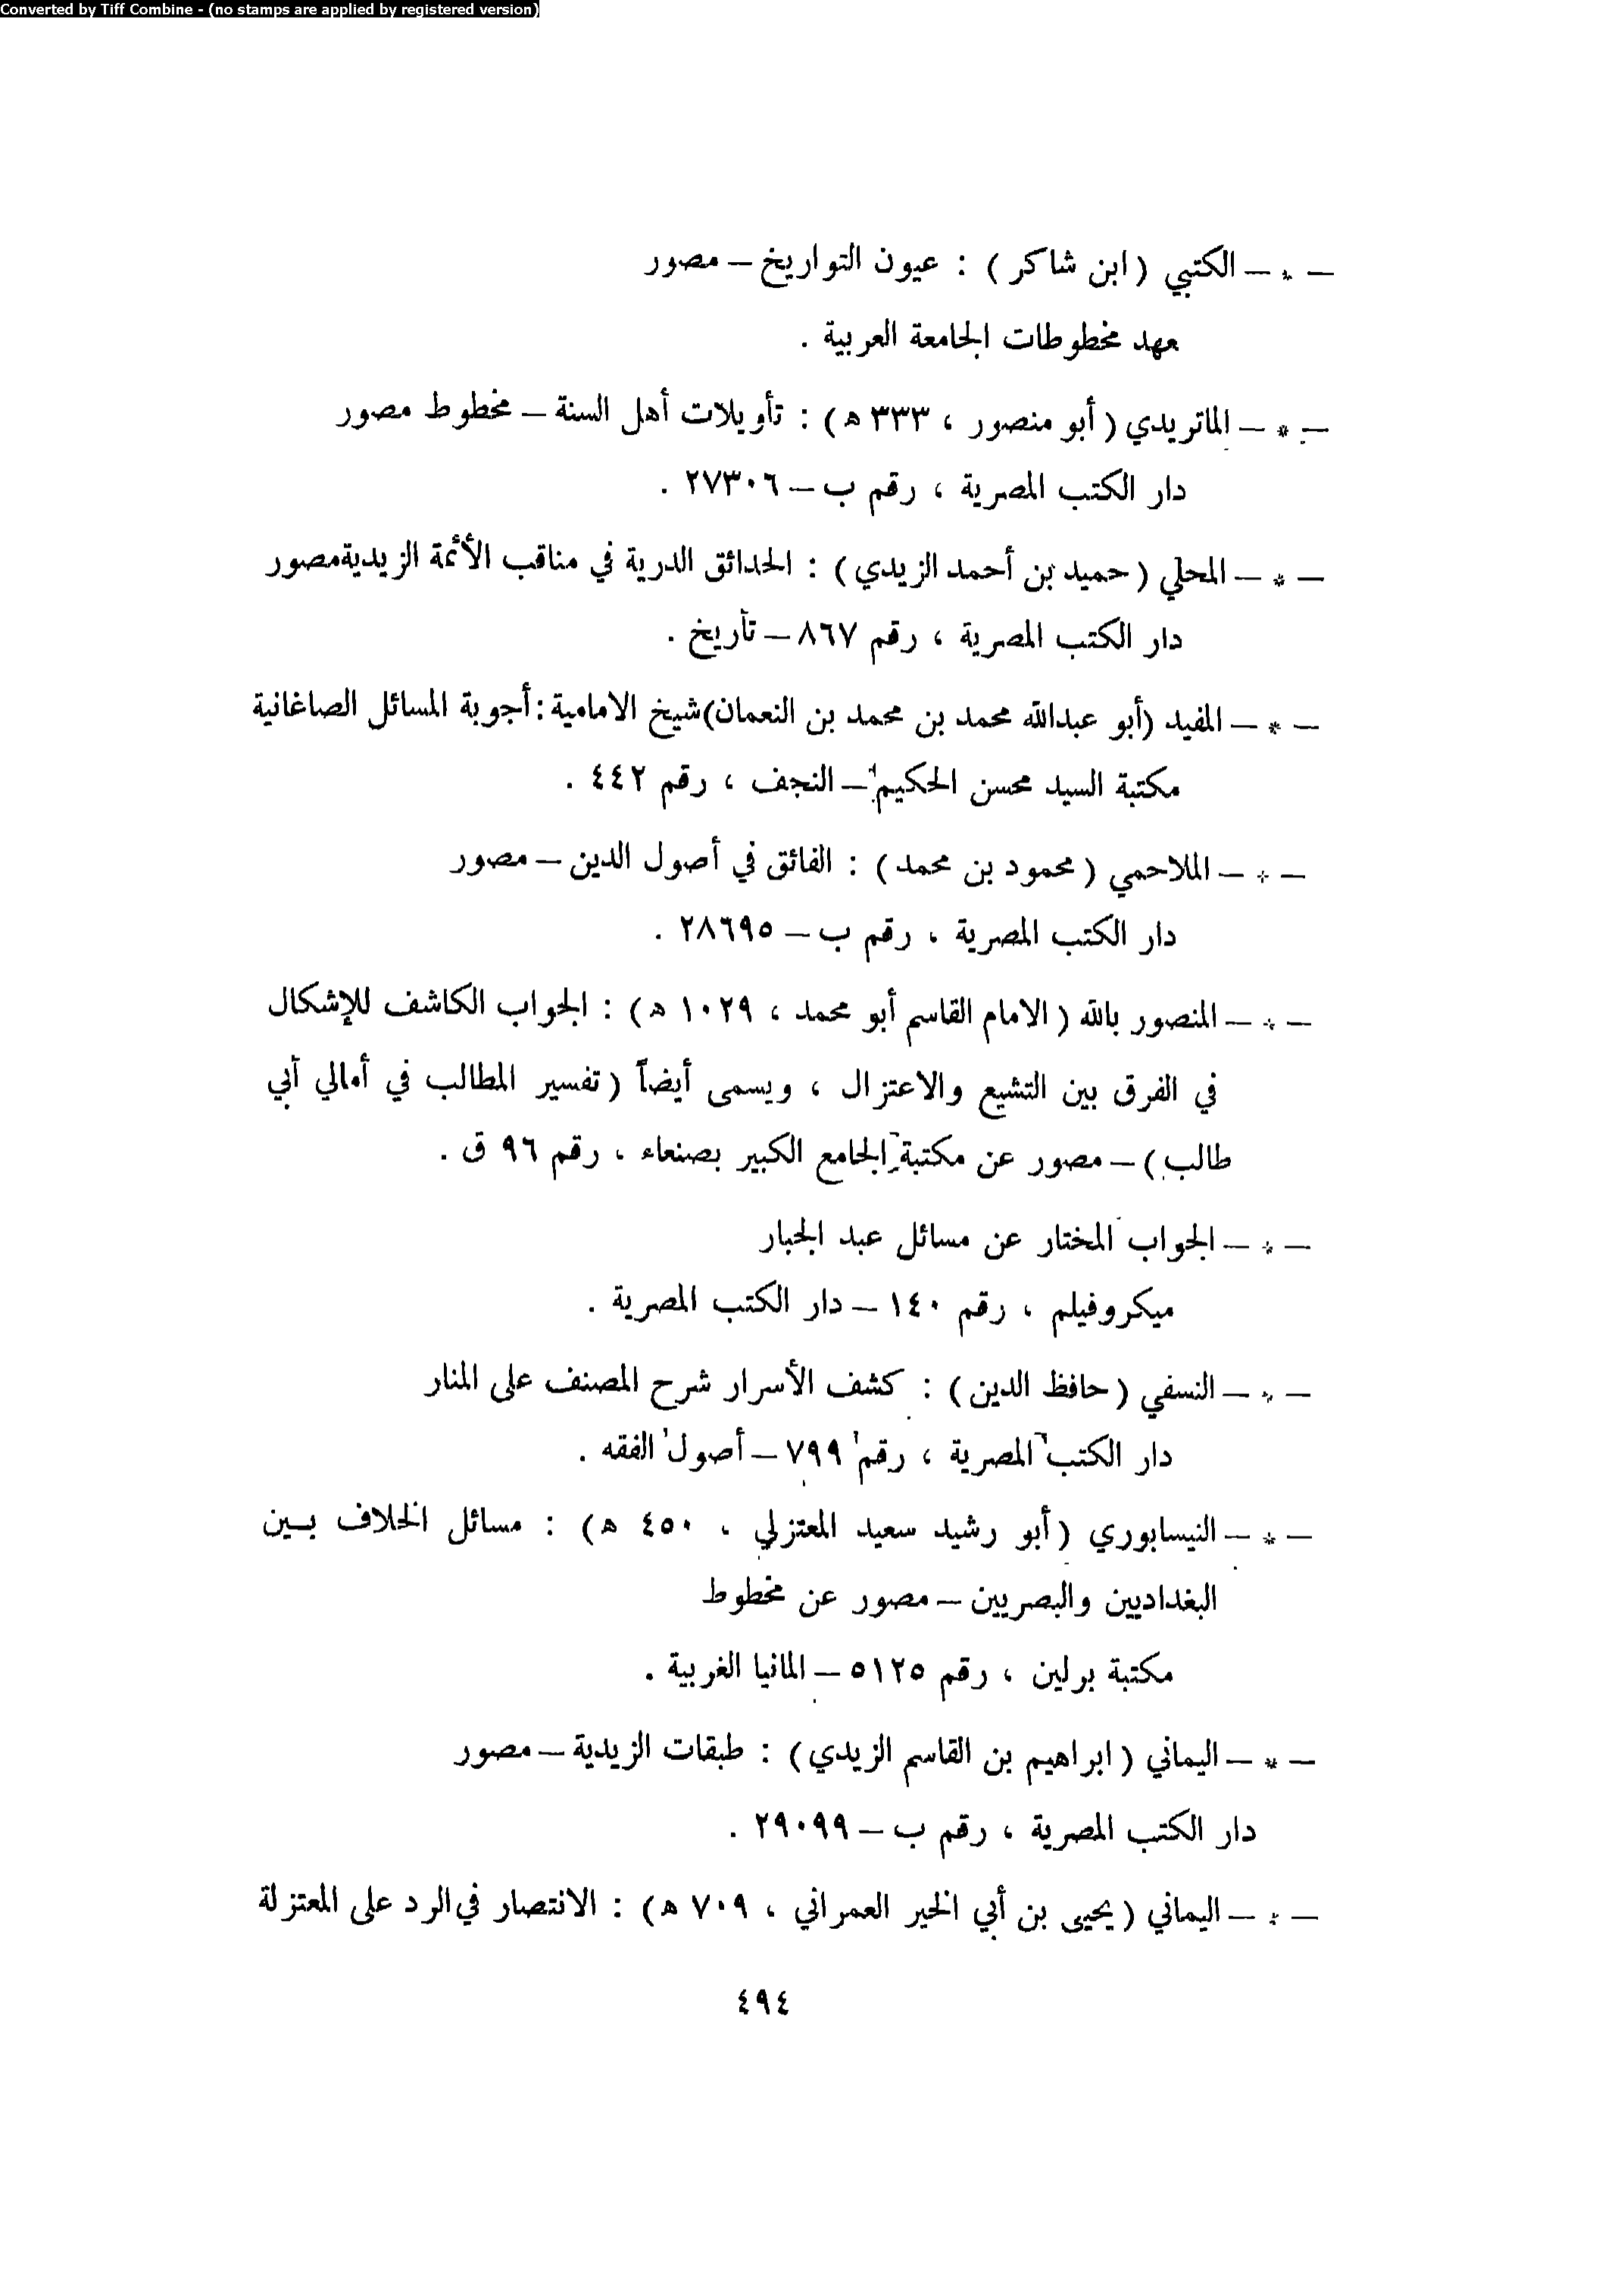 Converted by Tiff Combine - (no stamps are applied by registered version)
— * — الكتبي ( ابن شاكر ) : عيون التواريخ — مصور
معهد مخطوطات الجامعة العربية .
— * — الماتريدي ( أبو منصور ، ٣٣٣ ه ) : تأويلات أهل السنة — مخطوط مصور
دار الكتب المصرية ، رقم ب — ٢٧٣٠٦ .
— * — المحلي ( حميد بن أحمد الزيدي ) : الحدائق الدرية في مناقب الأئمة الزيدية مصور
دار الكتب المصرية ، رقم ٨٦٧ — تأريخ .
— * — المفيد (أبو عبدالله محمد بن محمد بن النعمان) شيخ الامامية : أجوبة المسائل الصاغانية
مكتبة السيد محسن الحكيم — النجف ، رقم ٤٤٢ .
— * — الملاحمي ( محمود بن محمد ) : الفائق في أصول الدين — مصور
دار الكتب المصرية ، رقم ب — ٢٨٦٩٥ .
— * — المنصور بالله ( الامام القاسم أبو محمد ، ١٠٢٩ ه ) : الجواب الكاشف للإشكال
في الفرق بين التشيع والاعتزال ، ويسمى أيضاً ( تفسير المطالب في أمالي أبي
طالب ) — مصور عن مكتبة الجامع الكبير بصنعاء ، رقم ٩٦ ق .
— * — الجواب المختار عن مسائل عبد الجبار
ميكروفيلم ، رقم ١٤٠ — دار الكتب المصرية .
— * — النسفي ( حافظ الدين ) : كشف الأسرار شرح المصنف على المنار
دار الكتب المصرية ، رقم ٧٩٩ — أصول الفقه .
— * — النيسابوري ( أبو رشيد سعيد المعتزلي ، ٤٥٠ ه ) : مسائل الخلاف بين
البغداديين والبصريين — مصور عن مخطوط
مكتبة برلين ، رقم ٥١٢٥ — المانيا الغربية .
— * — اليماني ( ابراهيم بن القاسم الزيدي ) : طبقات الزيدية — مصور
دار الكتب المصرية ، رقم ب — ٢٩٠٩٩ .
— * — اليماني ( يحيى بن أبي الخير العمراني ، ٧٠٩ ه ) : الانتصار في الرد على المعتزلة
٤٩٤